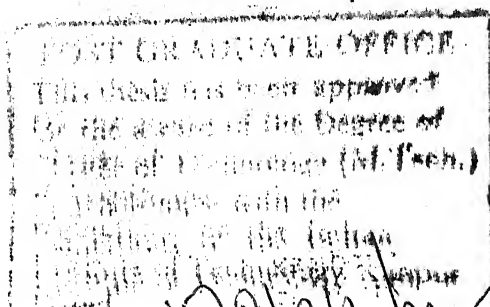 POST GRADUATE OFFICE
This thesis has been approved
for the award of the Degree of
Master of Technology (M.Tech.)
in accordance with the
of the Indian
Institute of Technology Kanpur